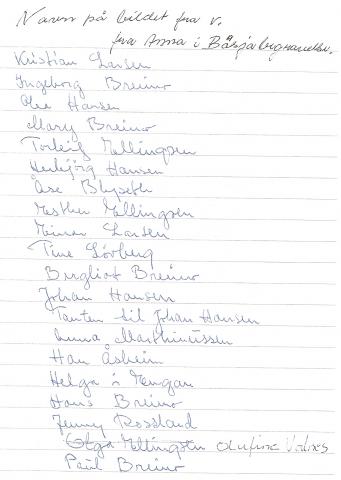 Navn på bildet fra v.
fra Anna i Båsjøberghandelen.
Kristian Larsen
Ingeborg Breimo
Ole Hansen
Mary Breimo
Torleif Ellingsen
Herbjörg Hansen
Åse Blyseth
Esther Ellingsen
Einar Larsen
Tine Lövberg
Bergliot Breimo
Johan Hansen
Tanten til Johan Hansen
Anna Marthinussen
Han Åsheim
Helga i Tengan
Hans Breimo
Jenny Rossland
Olga Ellingsen Olufine
Paul Breimo